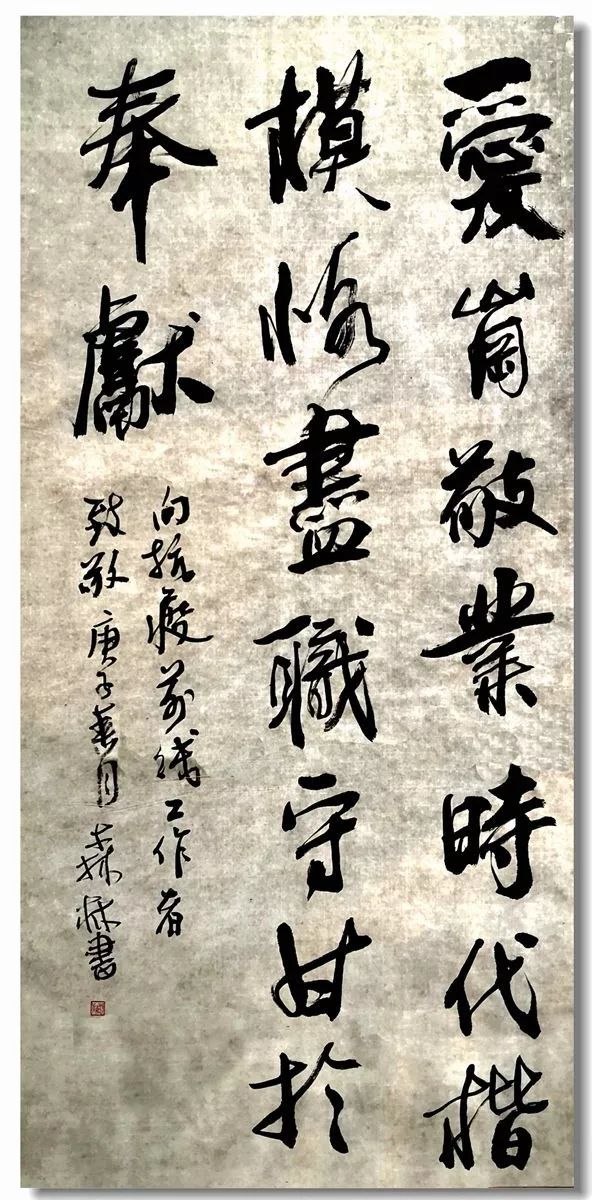 愛崗敬業時代楷
模恪盡職守甘於
奉獻
向抗疫前线工作者
致敬庚子春月森林書